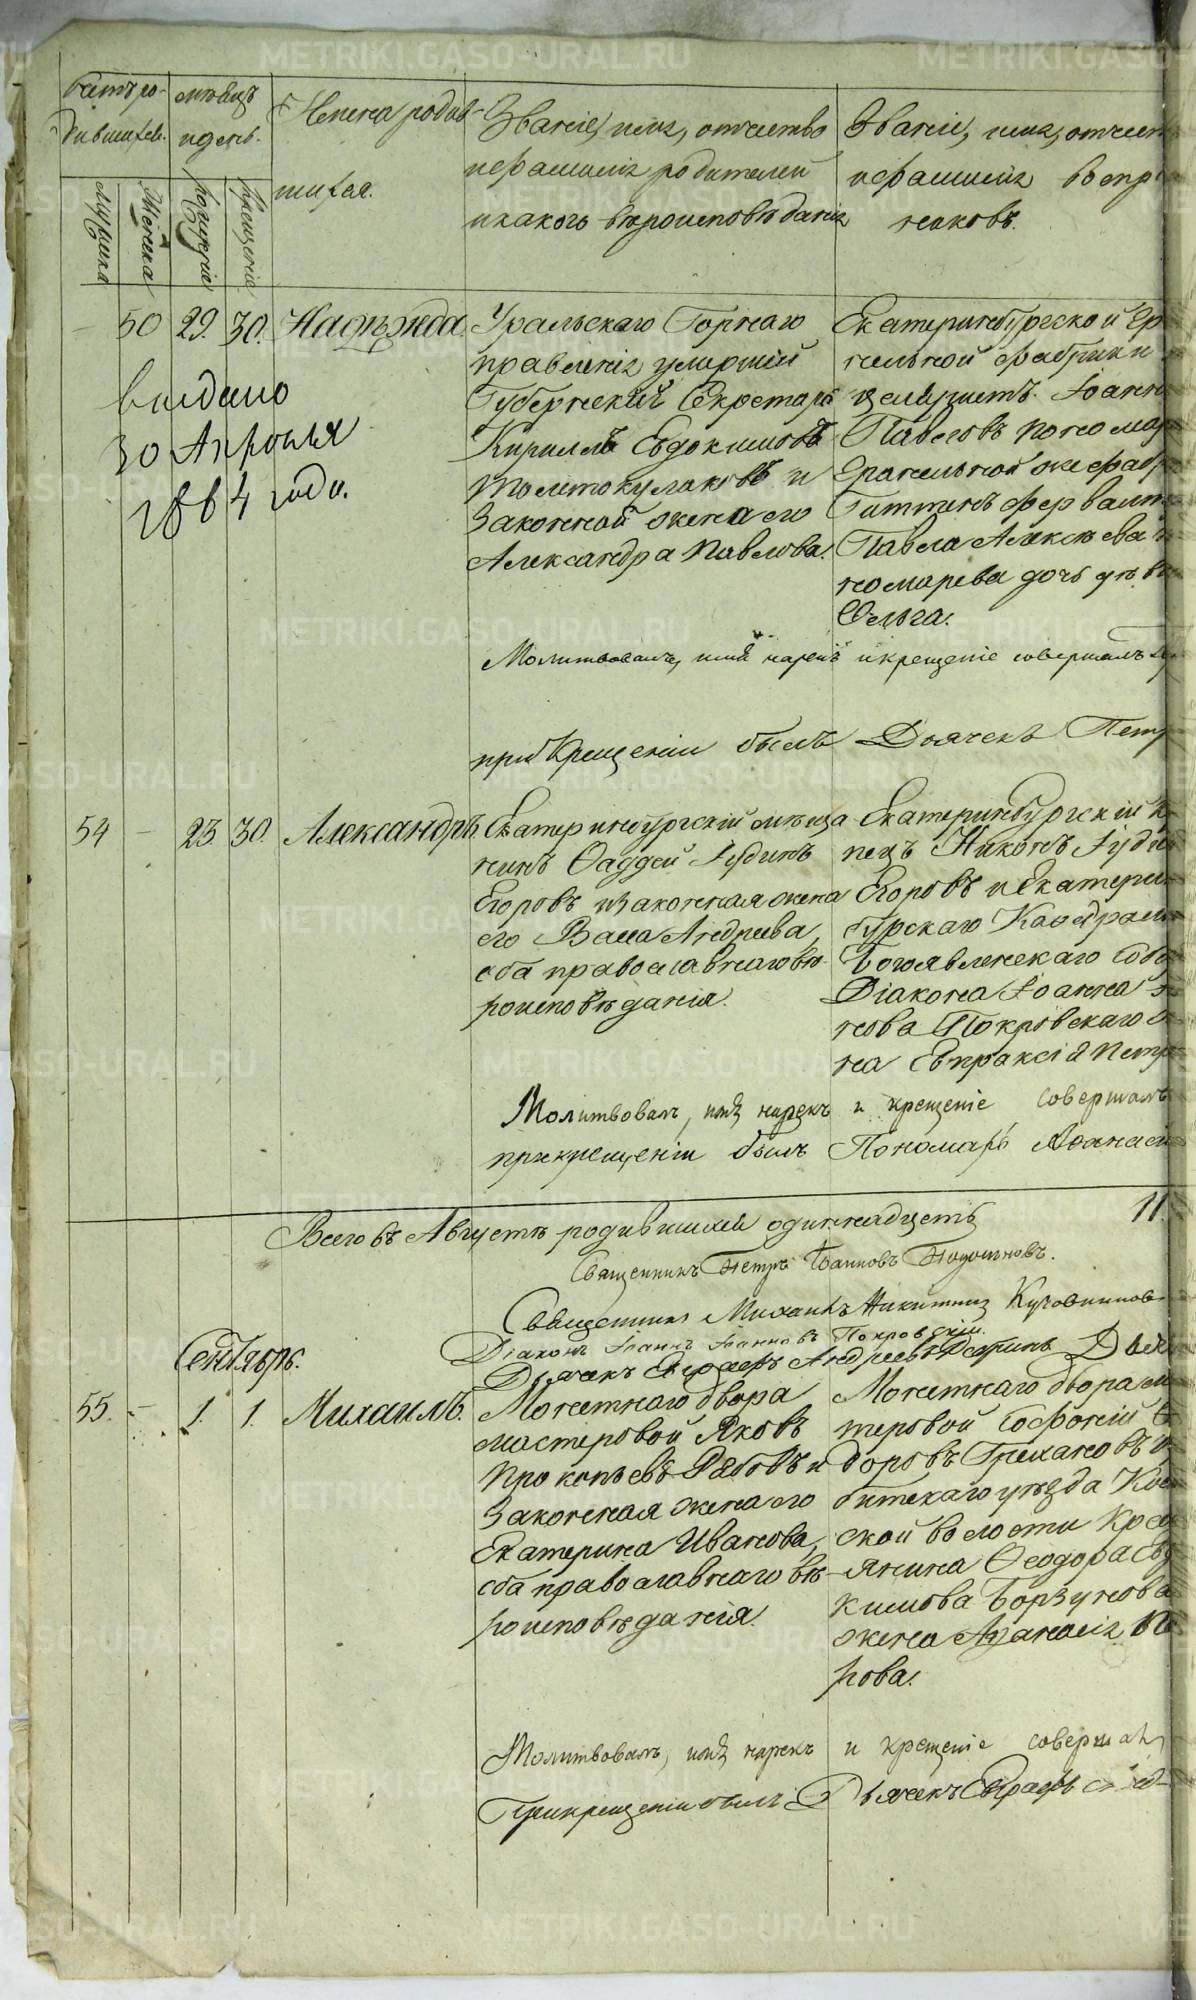 METRIKI.GASO-URAL.RU
Счетъ ро-
дившихся.
мѣсяцъ
и день.
Имена родив-
шихся.
Званіе, имя, отчество
и фамилія родителей
и какого вѣроисповѣданія
Званіе, имя, отчест
и фамилія воспрі
никовъ.
мужеска
женска
рожденія
крещенія
50 29. 30. Надежда.
выдано
30 Апрѣля
1864 года.
Уральскаго Горнаго
правленія умершій
Губернскій Секретарь
Кириллъ Евдокимовъ
Толстокулаковъ и
законной жена его
Александра Павлова.
Екатеринбургской Гр
нильной фабрики
Іоанн
Павловъ Пономар
Гранильной же фабр
Гиттенъ фервалт
Павла Алексѣева П
номарева дочь дѣви
Ольга.
Молитвовалъ, имя нарекъ и крещеніе совершалъ
при Крещеніи былъ Дьячекъ Петр
54 – 23. 30. Александръ
Екатеринбургскій мѣща
нинъ Фаддей Іудинъ
Егоровъ и законная жена
его Васса Андреева,
оба православнаго вѣ-
роисповѣданія.
Екатеринбургскій Ку
пецъ Никонъ Іудин
Егоровъ и Екатерин
бургскаго Каѳедрал
Богоявленскаго Собо
Діакона Іоанна
нова Покровскаго
на Евпраксія Петр
Молитвовалъ, имя нарекъ и крещеніе совершалъ
при крещеніи былъ Пономарь Аѳанасі
Всего въ Августѣ родившихся одиннадцать 11.
Священникъ Петръ Іоанновъ
Священникъ Михаилъ Никитинъ
Діаконъ Іоаннъ Іоанновъ Покровскій.
Дьячекъ Евграфъ Андреевъ
Сентябрь.
55. – 1. 1. Михаилъ.
Монетнаго двора
мастеровой Яковъ
Прокопьевъ Рябовъ и
законная жена его
Екатерина Иванова,
оба православнаго вѣ-
роисповѣданія.
Монетнаго двора ма
теровой Софоній Ѳ
доровъ Грехановъ И
битскаго уѣзда
ской волости Крес
янина Ѳеодора Евд
кимова Борзунова
жена Аѳанасія Пе
рова.
Молитвовалъ, имя нарекъ и крещеніе совершалъ
При крещеніи былъ Дьячекъ Евграфъ